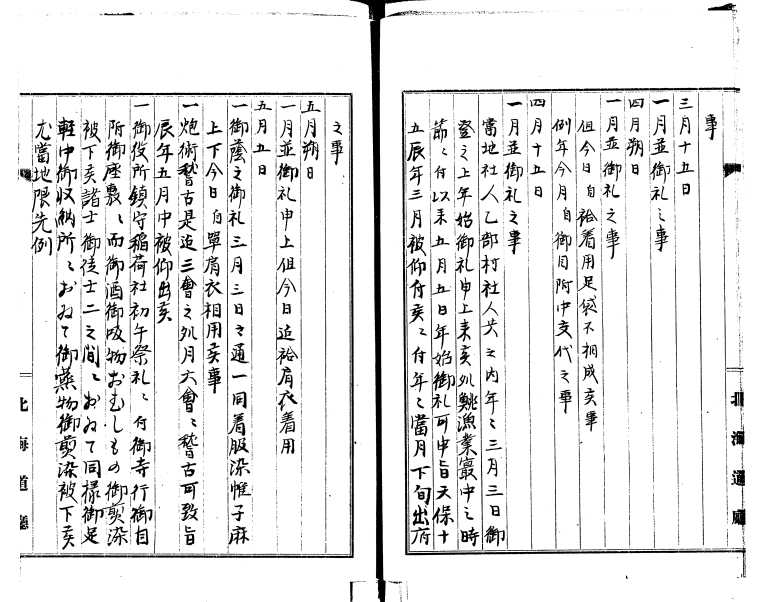 事
三月十五日
一月並御礼之事
四月朔日
一月並御礼之事
但今日ゟ袷着用足袋不相成候事
例年今月ゟ御目附中交代之事
四月十五日
一月並御礼之事
當地社人乙部村社人共之内年々三月三日御
登之上年始御礼申上来候処鯡漁業最中之時
節ニ付以来五月五日年始御礼可申旨天保十
五辰年三月被仰付候ニ付年々當月下旬出府
北海道廳
之事
五月朔日
一月並御礼申上但今日迄袷肩衣着用
五月五日
一御蔭之御礼三月三日之通一同着服染帷子麻
上下今日ゟ單肩衣相用候事
一炮術稽古是迄三會之処月六會ニ稽古可致旨
辰年五月中被仰出候
一御役所鎮守稲荷社初午祭礼ニ付御寺行御目
附御座敷ニ而御酒御吸物おむしもの御煎染
被下候諸士御徒士二之間ニおゐて同様御足
軽中御収納所ニおゐて御蒸物御煎染被下候
尤當地限先例
北海道廳